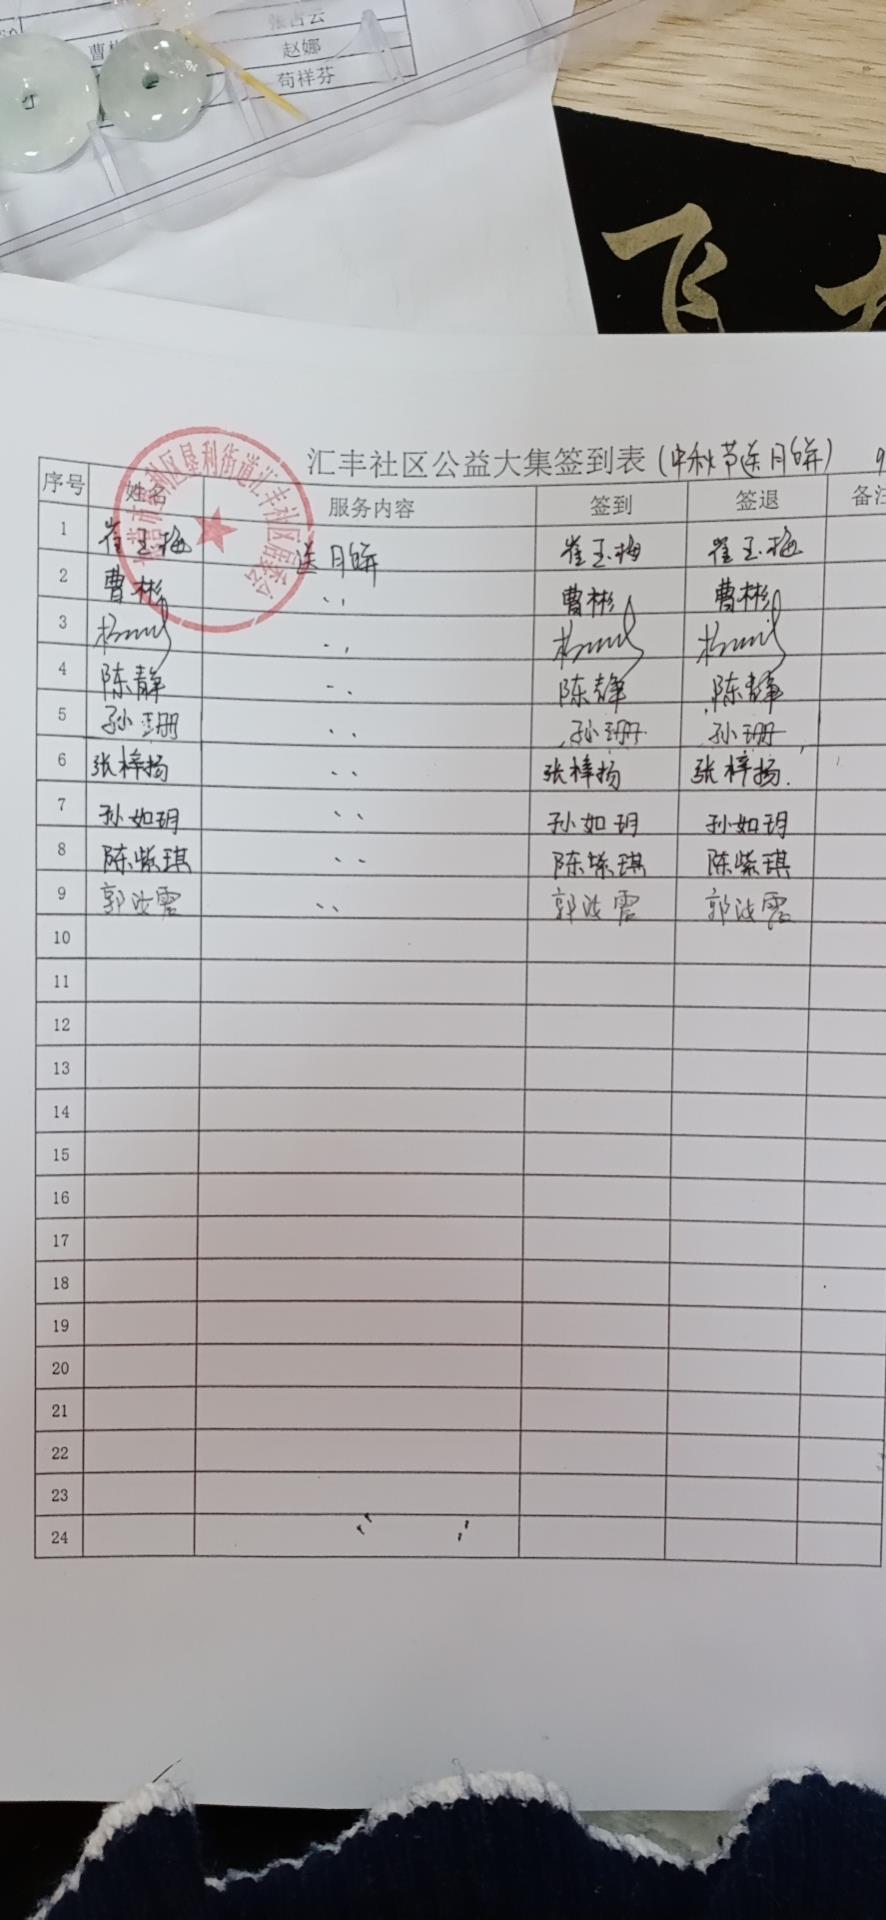 赵娜
苟祥芬
飞
汇丰社区公益大集签到表(中秋节送月饼) 9
序号 姓名 服务内容 签到 签退 备注
区垦利街道汇丰社区居委会
1 崔玉梅 送月饼 崔玉梅 崔玉梅
2 曹彬 、、 曹彬 曹彬
3 、、
4 陈静 、、 陈静 陈静
5 孙珊 、、 孙珊 孙珊
6 张梓扬 、、 张梓扬 张梓扬.
7 孙如玥 、、 孙如玥 孙如玥
8 陈紫琪 、、 陈紫琪 陈紫琪
9 郭 、、 郭 郭
10
11
12
13
14
15
16
17
18
19
20
21
22
23
24